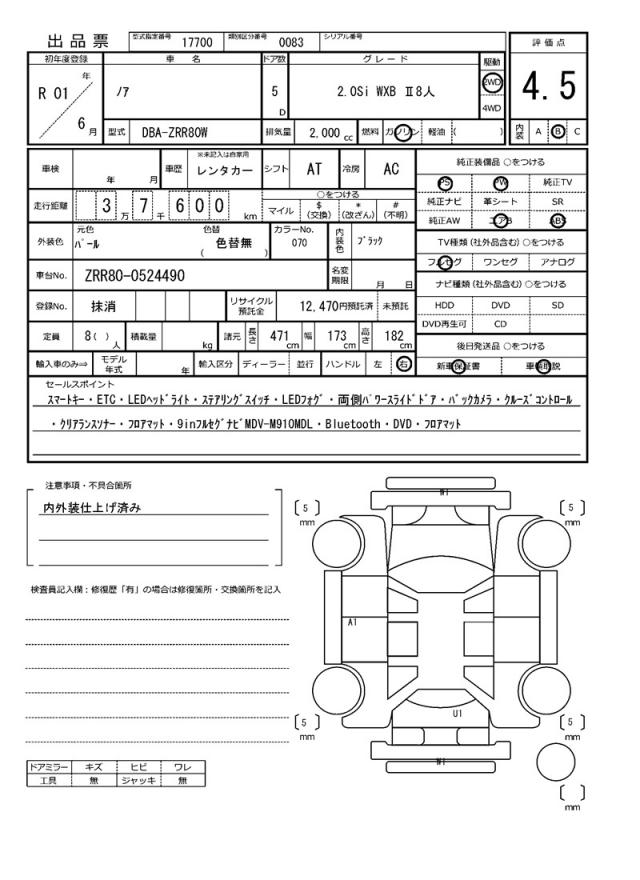 出品票 型式指定番号 17700 類別区分番号 0083 シリアル番号
評価点
4.5
内装 A B C
初年度登録 車名 ドア数 グレード 駆動
R 01 年 6 月 ノア 5 D 2.0Si WXB Ⅱ8人 2WD 4WD
型式 DBA-ZRR80W 排気量 2,000 cc 燃料 ガソリン 軽油 ( )
車検 年 月 車歴 ※未記入は自家用 レンタカー シフト AT 冷房 AC
走行距離 3 万 7 千 6 0 0 km ○をつける マイル $ (交換) * (改ざん) # (不明)
外装色 元色 パール 色替 色替無 ( ) カラーNo. 070 内装色 ブラック
車台No. ZRR80-0524490 名変期限 月 日
登録No. 抹消 リサイクル預託金 12,470円預託済 未預託
定員 8( ) 人 積載量 kg 諸元 長さ 471 cm 幅 173 cm 高さ 182 cm
輸入車のみ⇒ モデル年式 年 輸入区分 ディーラー 並行 ハンドル 左 右
純正装備品 ○をつける
PS PW 純正TV
純正ナビ 革シート SR
純正AW エアB ABS
TV種類(社外品含む) ○をつける
フルセグ ワンセグ アナログ
ナビ種類(社外品含む) ○をつける
HDD DVD SD
DVD再生可 CD
後日発送品 ○をつける
新車保証書 車輌取説
セールスポイント
スマートキー・ETC・LEDヘッドライト・ステアリングスイッチ・LEDフォグ・両側パワースライドドア・バックカメラ・クルーズコントロール
・クリアランスソナー・フロアマット・9inフルセグナビMDV-M910MDL・Bluetooth・DVD・フロアマット
注意事項・不具合箇所
内外装仕上げ済み
検査員記入欄:修復歴「有」の場合は修復箇所・交換箇所を記入
W1
[ 5 ] mm
[ 5 ] mm
A1
U1
[ 5 ] mm
[ 5 ] mm
W1
[ ] mm
ドアミラー キズ ヒビ ワレ
工具 無 ジャッキ 無